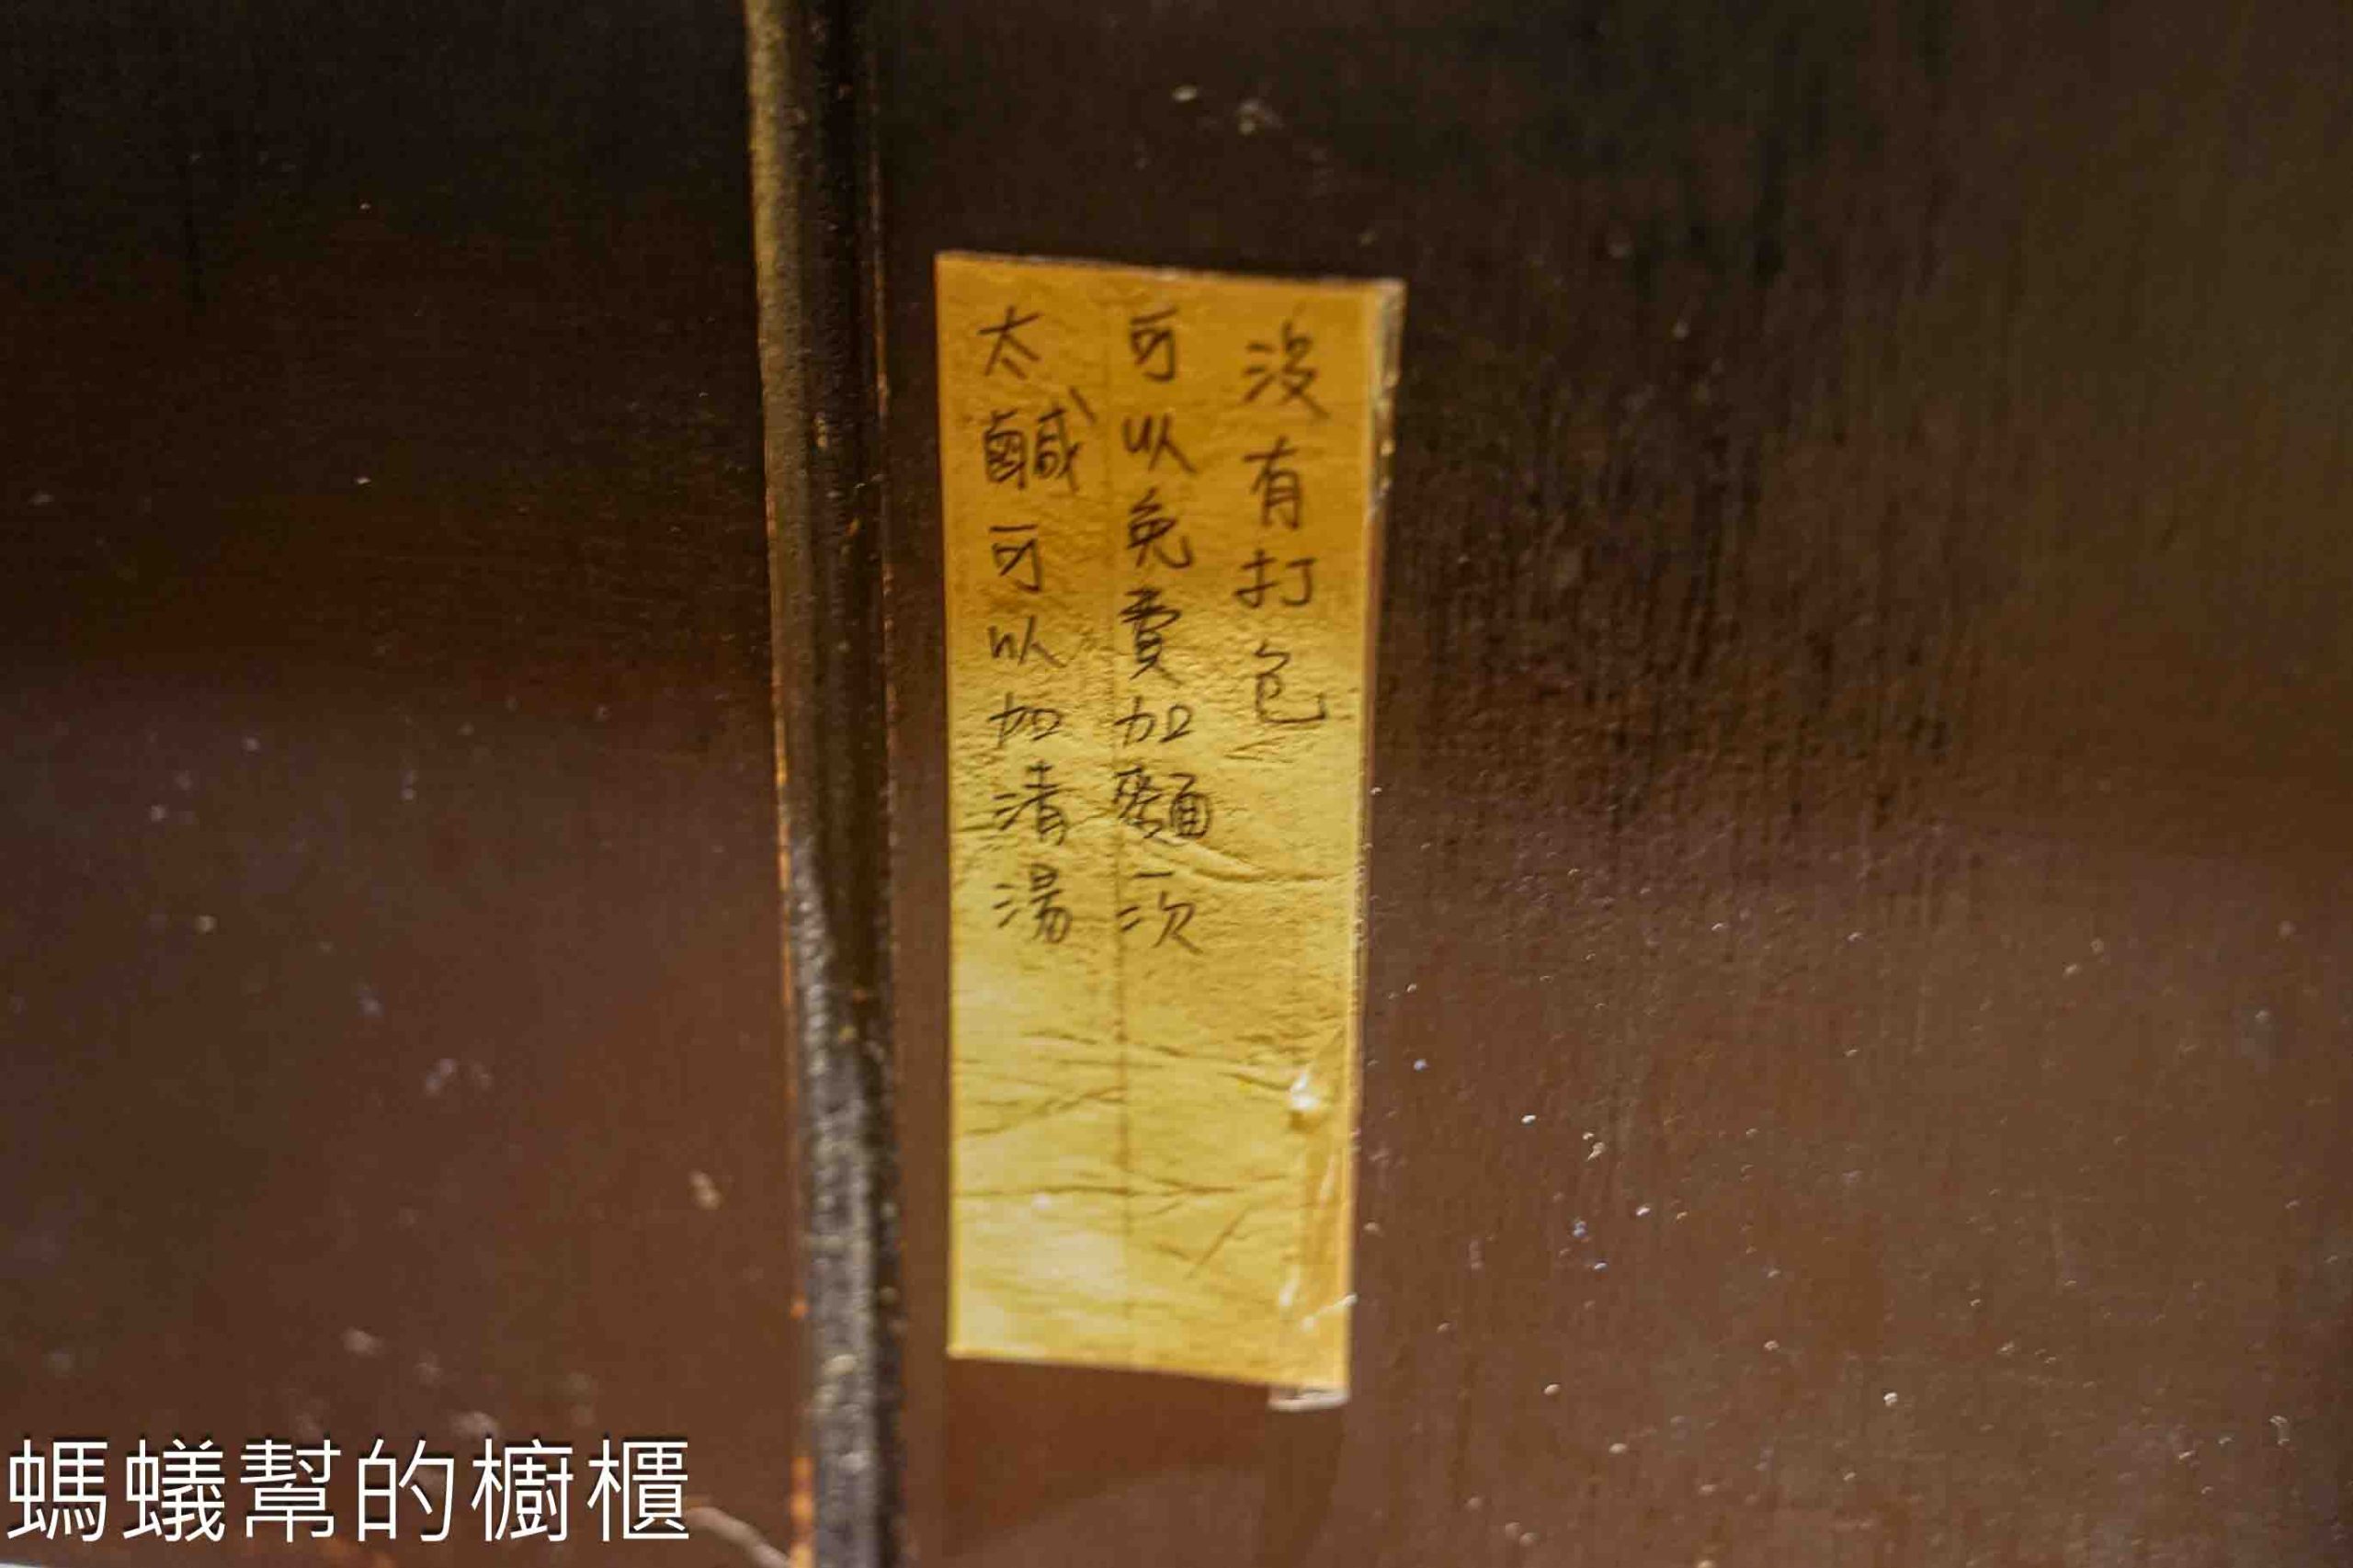 沒有打包
可以免費加麵一次
太鹹可以加清湯
螞蟻幫的櫥櫃